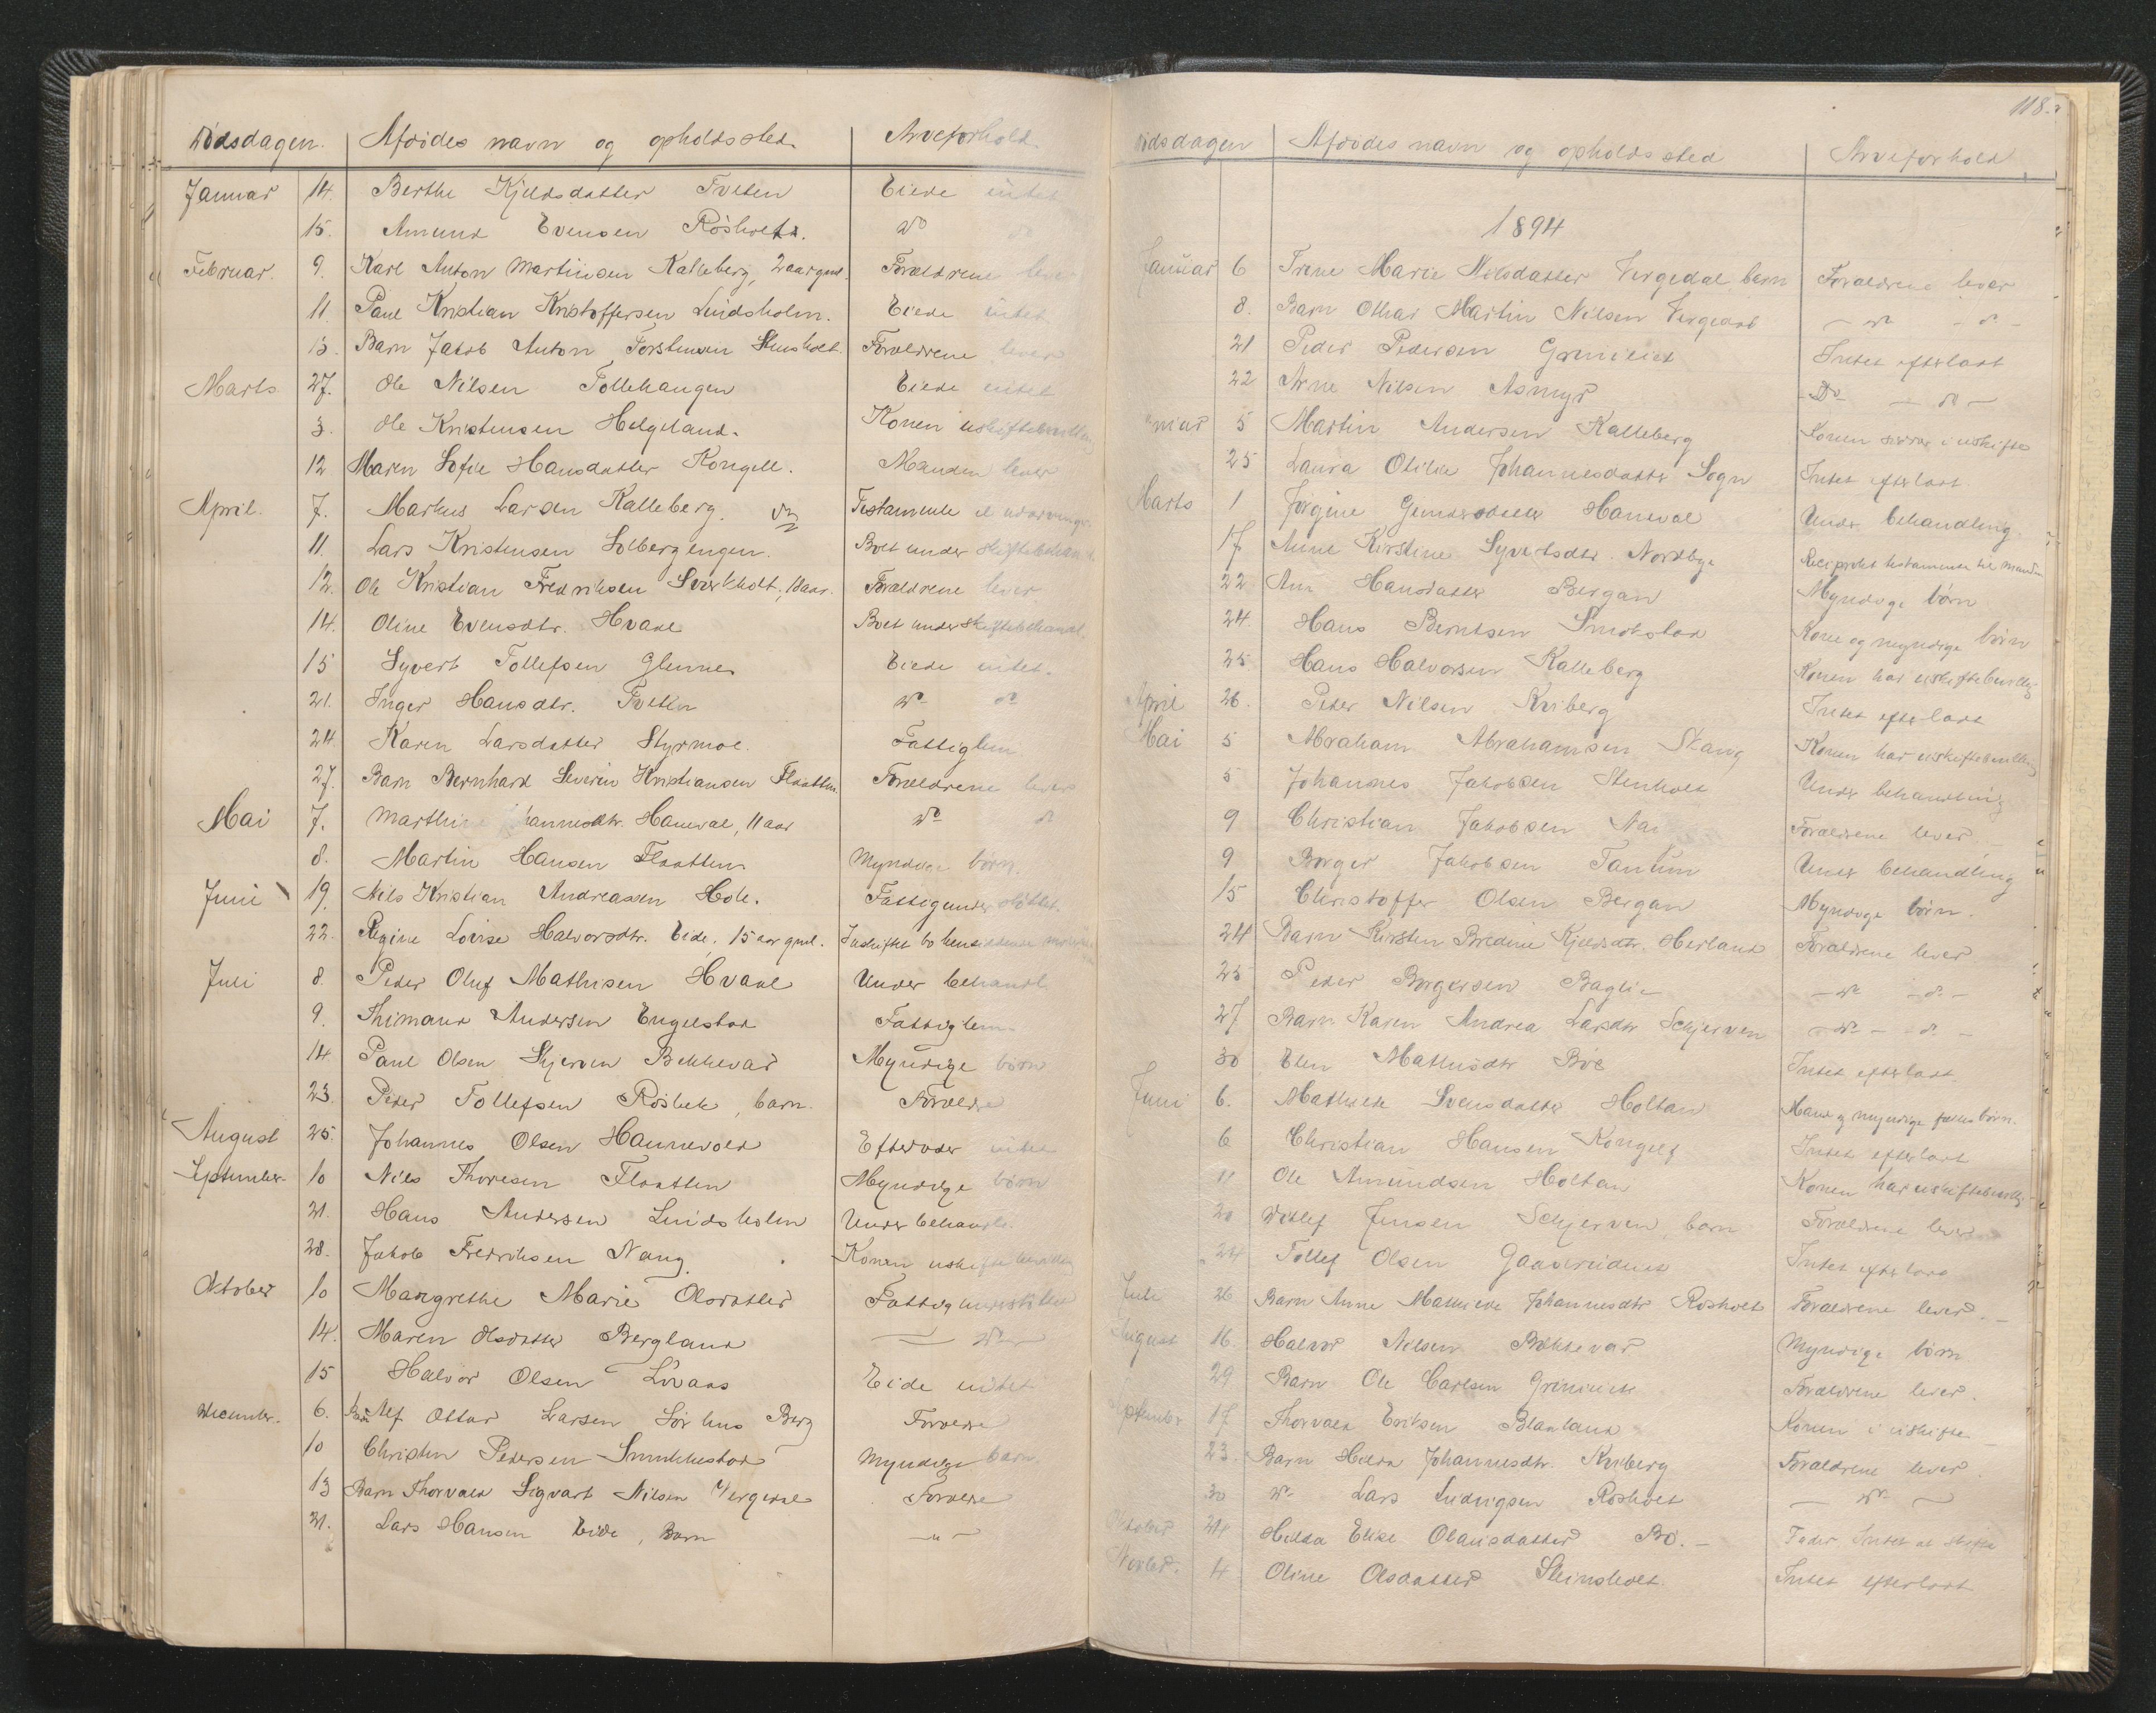 Dødsdagen. Afdødes navn og opholdssted. Arveforhold.
Januar 14. Berthe Kjeldsdatter Tveten Eiede intet
15. Amund Evensen Røsholt. do do
Februar. 9. Karl Anton Martinsen Kalleberg, 2 aar gml. Forældrene lever
11. Paul Kristian Kristoffersen Lindsholm. Eiede intet
13. Barn Jakob Anton Torstensen Stensholt. Forældrene lever
Marts. 27. Ole Nilsen Tollehaugen Eiede intet
3. Ole Kristensen Helgeland. Konen uskiftebevilling
12 Maren Sofie Hansdatter Kongelf. Manden lever
April. 7. Markus Larsen Kalleberg. Testamente
11. Lars Kristensen Solbergengen. Boet under skiftebehandl.
12. Ole Kristian Fredriksen 18 aar. Forældrene lever
14. Oline Evensdtr. Hvaal Boet under skiftebehandl.
15 Syvert Tollefsen Glenne Eiede intet.
21. Inger Hansdtr. Tveten do do
24. Karen Larsdatter Styrmoe. Fattiglem
27. Barn Bernhard Severin Kristiansen Flaatten. Forældrene lever
Mai 7. Marthine Johannesdtr. Haneval, 11 aar do do
8. Martin Hansen Flaatten Myndige børn.
Juni 19. Nils Kristian Andreassen Hole. Fattigunderstøttet.
22. Regine Lovise Halvorsdtr. Eide, 15 aar gml. Uskiftet bo
Juli 8. Peder Oluf Mathisen Hvaal Under behandl.
9. Thimand Andersen Engelstad Fattiglem
14. Paul Olsen Skjerven Bekkevar Myndige børn
23. Peder Tollefsen Røsholt, barn. Forældre
August 25. Johannes Olsen Hannevold Efterlader intet
September. 10 Nils Thoresen Flaatten Myndige børn
21. Hans Andersen Lindsholm Under behandl.
28. Jakob Fredriksen Nang. Konen uskiftebevilling
Oktober 10 Margrethe Marie Olsdatter Fattigunderstøttet
14. Maren Olsdatter Bergland — do —
15 Halvor Olsen Løvaas Eide intet
December. 6. Barn Alf Ottar Larsen Sørhus Berg Forældre
10 Christen Pedersen Smukkestad Myndige børn.
13 Barn Thorvald Sigvart Nilsen Vergedal Forældre
31. Lars Hansen Eide, Barn — " —
118.
Dødsdagen Afdødes navn og opholdssted Arveforhold
1894
Januar 6 Trine Marie Nilsdatter Vergedal, barn Forældrene lever
8. Barn Othar Martin Nilsen Vergedal — do — do —
21 Peder Pedersen Intet efterladt
22 Arne Nilsen Asmyr Do — do —
5 Martin Andersen Kalleberg Konen sidder i uskifte
25 Laura Otilde Johannesdatter Sogn Intet efterladt
Marts 1 Jørgine Gundersdatter Haneval Under behandling
17 Anne Kirstine Syvertsdtr. Nordbye Reciprokt testamente til manden
22 Ann Hansdatter Bergan Myndige børn
24. Hans Berntsen Smukstad Kone og myndige børn
25. Hans Halvorsen Kalleberg Konen har uskiftebevillg.
April 26. Peter Nilsen Kviberg Intet efterladt
Mai 5 Abraham Abrahamsen Stang Konen har uskiftebevilling
5 Johannes Jakobsen Stenholt Under behandling
9 Christian Jakobsen Forældrene lever.
9 Borger Jakobsen Tanum Under behandling
15 Christoffer Olsen Bergan Myndige børn.
24 Barn Kirsten Bredine Kjeldsdtr. Herland Forældrene lever.
25 Peder Borgersen Baglie — do — do —
27 Barn Karen Andrea Larsdtr Schjerven — do — do —
30 Elen Mathisdtr Bøe Intet efterladt
Juni 6. Mathilde Svensdatter Holtan Mand og myndige børn.
6 Christian Hansen Kongelf Intet efterladt
11 Ole Amundsen Holtan Konen har uskiftebevillg.
20 Ditlef Jensen Schjerven, barn Forældrene lever
24 Tollef Olsen Intet efterladt
Juli 26 Barn Anne Mathilde Johannesdtr Røsholt Forældrene lever.
August 16. Halvor Nilsen Bekkevar Myndige børn
29 Barn Ole Carlsen Forældrene lever.
September 17 Thorvald Eriksen Blaaland Konen i uskifte
23. Barn Hilda Johannesdtr. Kviberg Forældrene lever.
30 do Lars Ludvigsen Røsholt — do —
Oktober 24 Hilda Elise Olausdatter Bø. —
Novbr. 4 Oline Olsdatter Steinsholt Intet efterladt